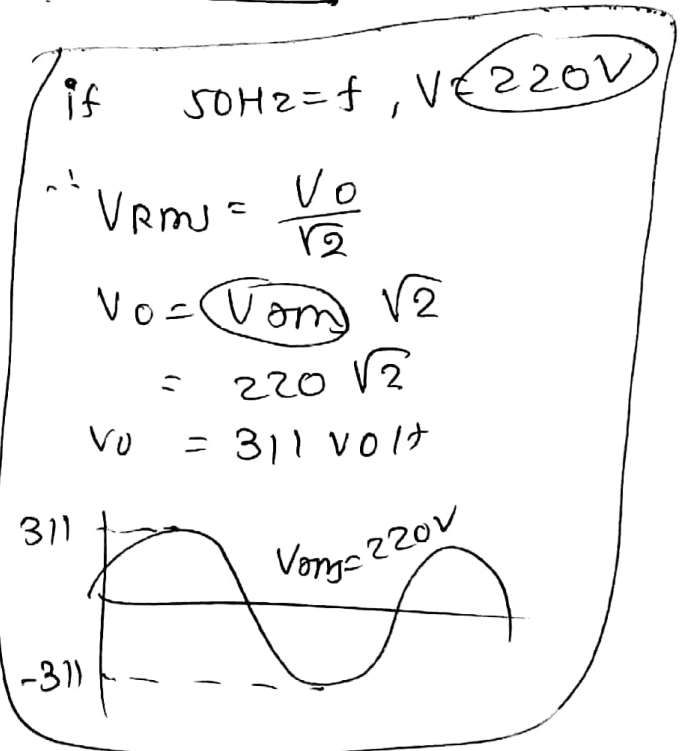 if 50Hz=f , V=220V
∴ VRms = V0/√2
V0 = Vrms √2
= 220 √2
V0 = 311 volt
311
Vrms=220V
-311